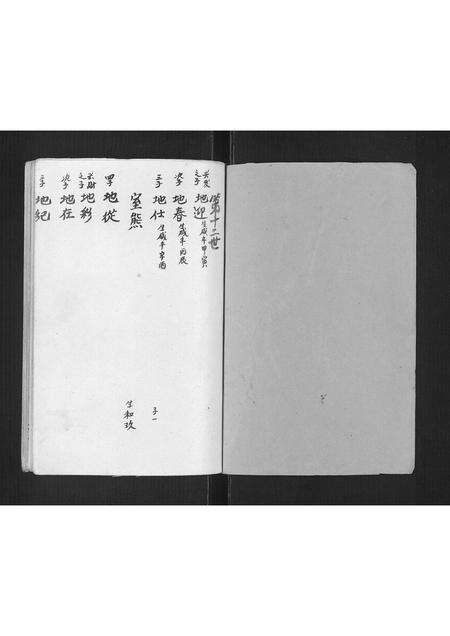 第十二世
之子 地迎 生咸丰甲寅
次子 地春 生咸丰丙辰
三子 地仕 生咸丰辛酉 子一
室熊 生和玖
四子 地從
之子 地彩
次子 地在
三子 地紀